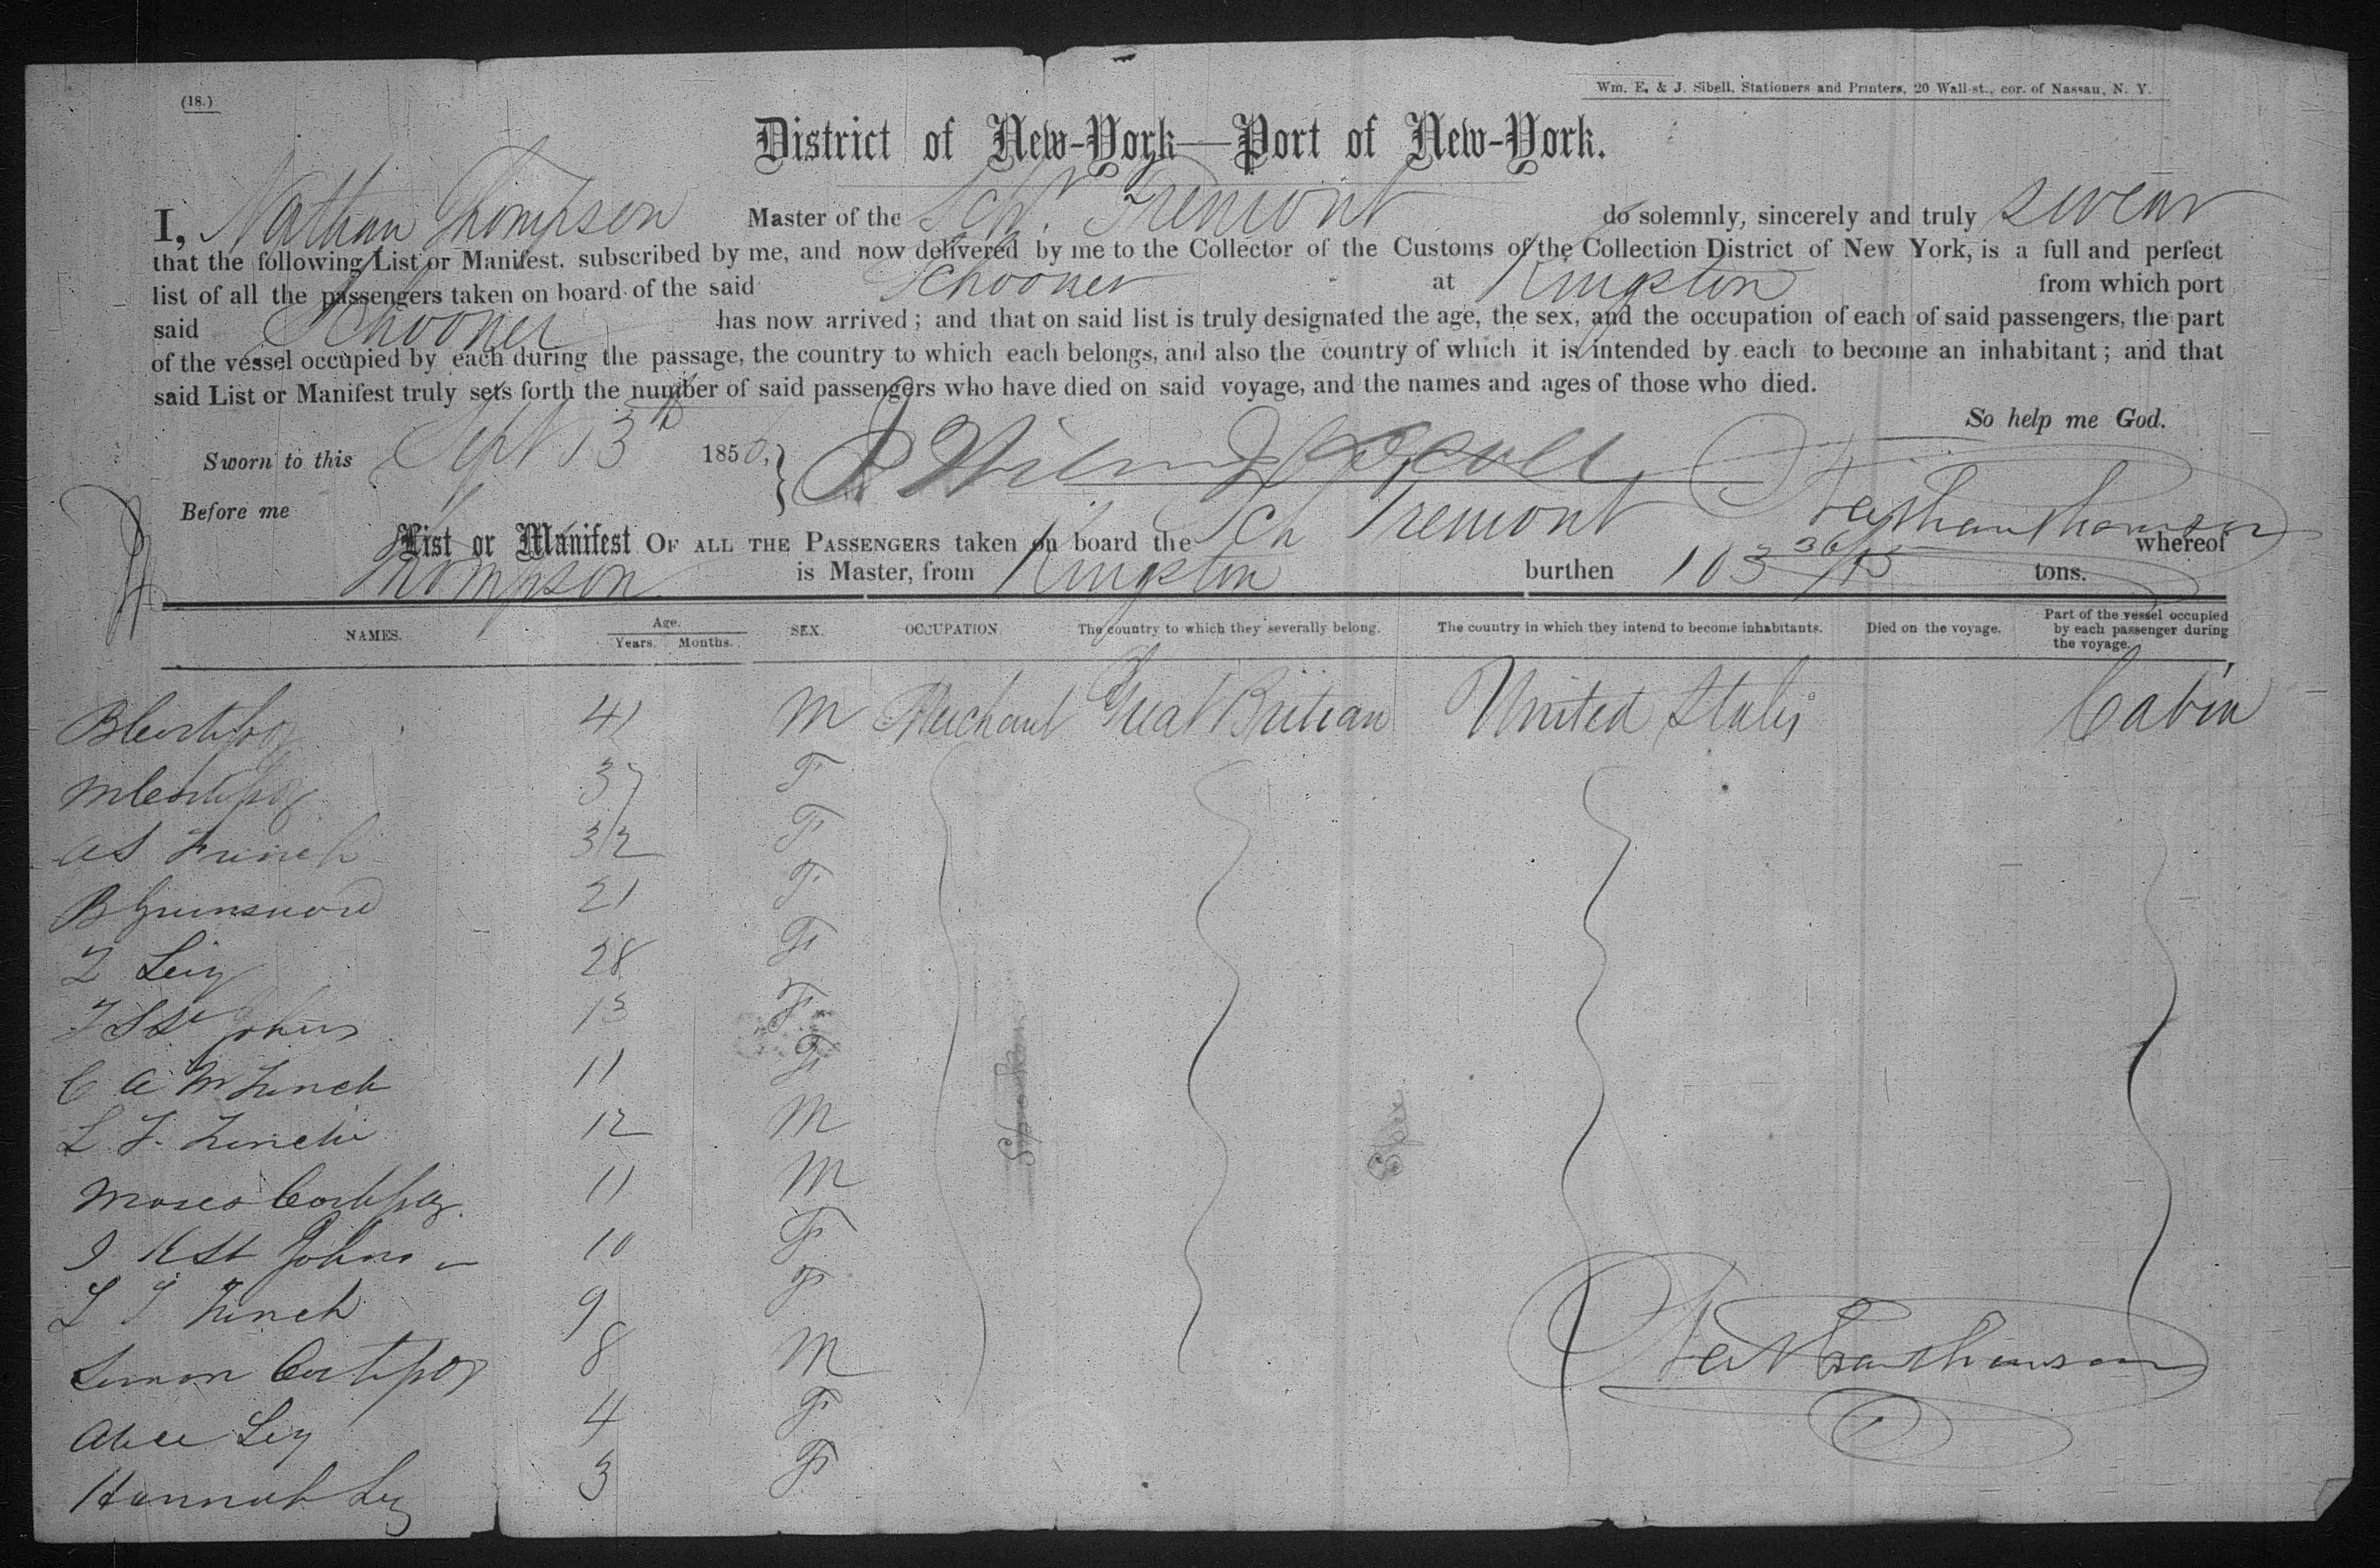 (18.)
Wm. E. & J. Sibell, Stationers and Printers, 20 Wall-st., cor. of Nassau, N. Y.
District of New-York—Port of New-York.
I, Nathan Thompson Master of the Schr. Tremont do solemnly, sincerely and truly swear
that the following List or Manifest, subscribed by me, and now delivered by me to the Collector of the Customs of the Collection District of New York, is a full and perfect
list of all the passengers taken on board of the said Schooner at Kingston from which port
said Schooner has now arrived; and that on said list is truly designated the age, the sex, and the occupation of each of said passengers, the part
of the vessel occupied by each during the passage, the country to which each belongs, and also the country of which it is intended by each to become an inhabitant; and that
said List or Manifest truly sets forth the number of said passengers who have died on said voyage, and the names and ages of those who died.
So help me God.
Sworn to this Sept 13th 1856,
Before me
List or Manifest OF ALL THE PASSENGERS taken on board the Sch Tremont whereof
Thompson is Master, from Kingston burthen 103 tons.
NAMES. Age. Years. Months. SEX. OCCUPATION The country to which they severally belong. The country in which they intend to become inhabitants. Died on the voyage. Part of the vessel occupied by each passenger during the voyage.
41 M Merchant Great Britian United States Cabin
37 F
A S Finch 32 F
B 21 F
28 F
St Johns 13 F
C A M Finch 11 F
L F. 12 M
Moses 11 M
St Johns 10 F
Finch 9 F
8 M
Alice 4 F
Hannah 3 F